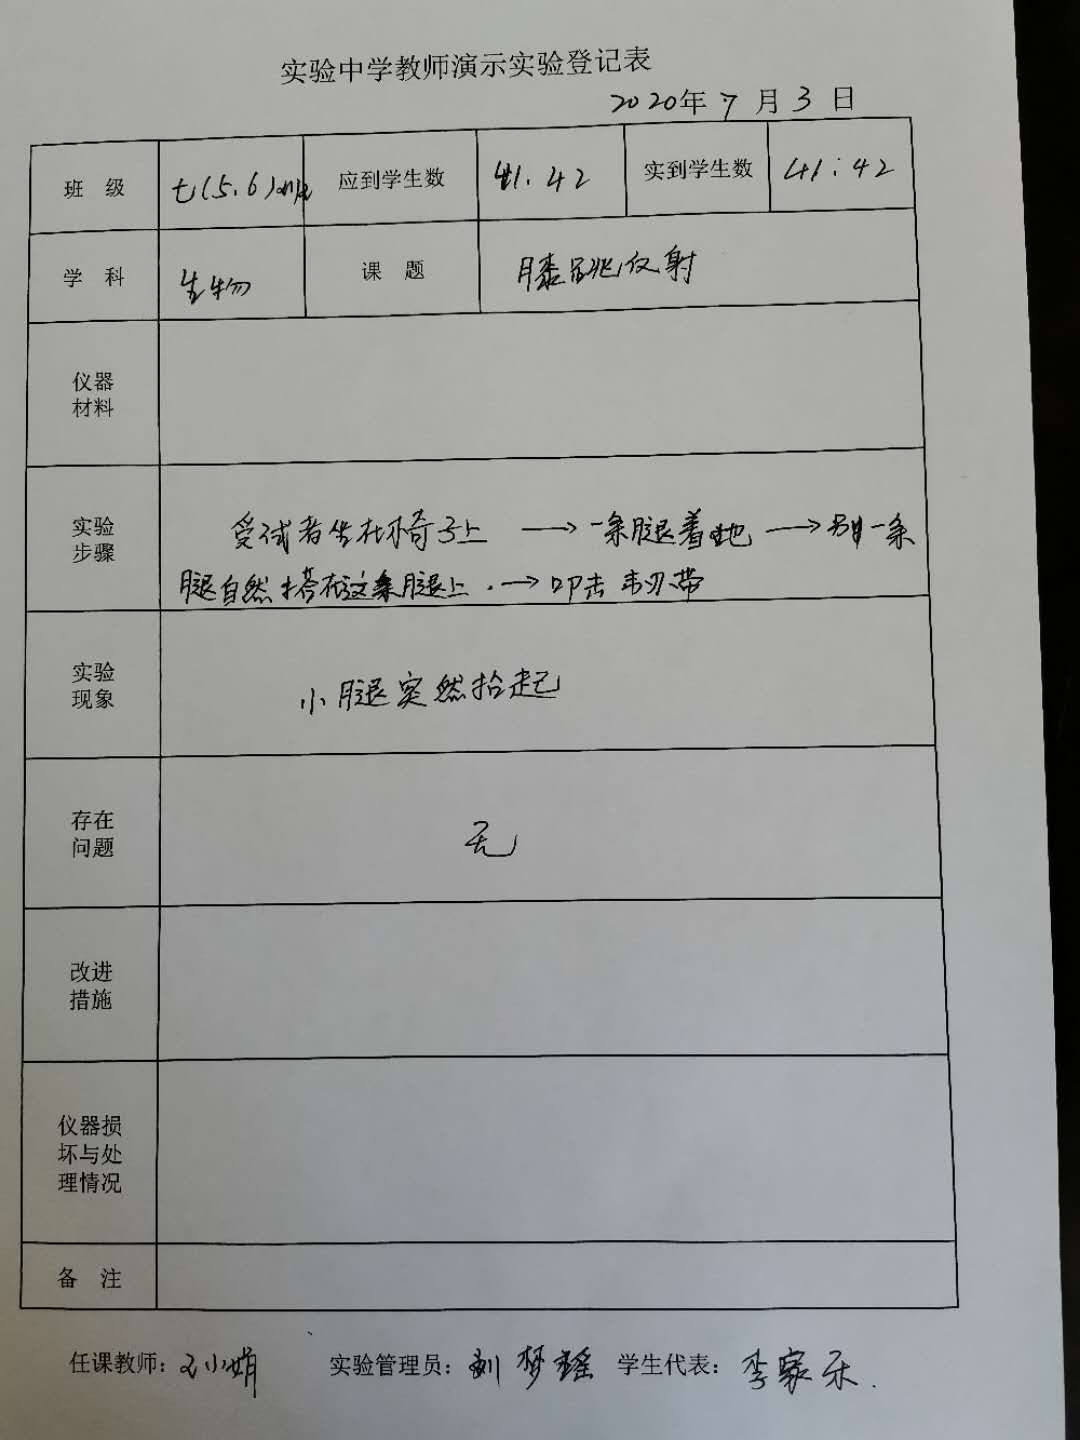 实验中学教师演示实验登记表
2020年 7 月 3 日
班 级 七(5.6)班 应到学生数 41. 42 实到学生数 41: 42
学 科 生物 课 题 膝跳反射
仪器
材料
实验
步骤
受试者坐在椅子上 → 一条腿着地 → 另一条
腿自然搭在这条腿上. → 叩击 韧带
实验
现象
小腿突然抬起
存在
问题
无
改进
措施
仪器损
坏与处
理情况
备 注
任课教师: 王小娟 实验管理员: 刘梦瑶 学生代表: 李家乐.